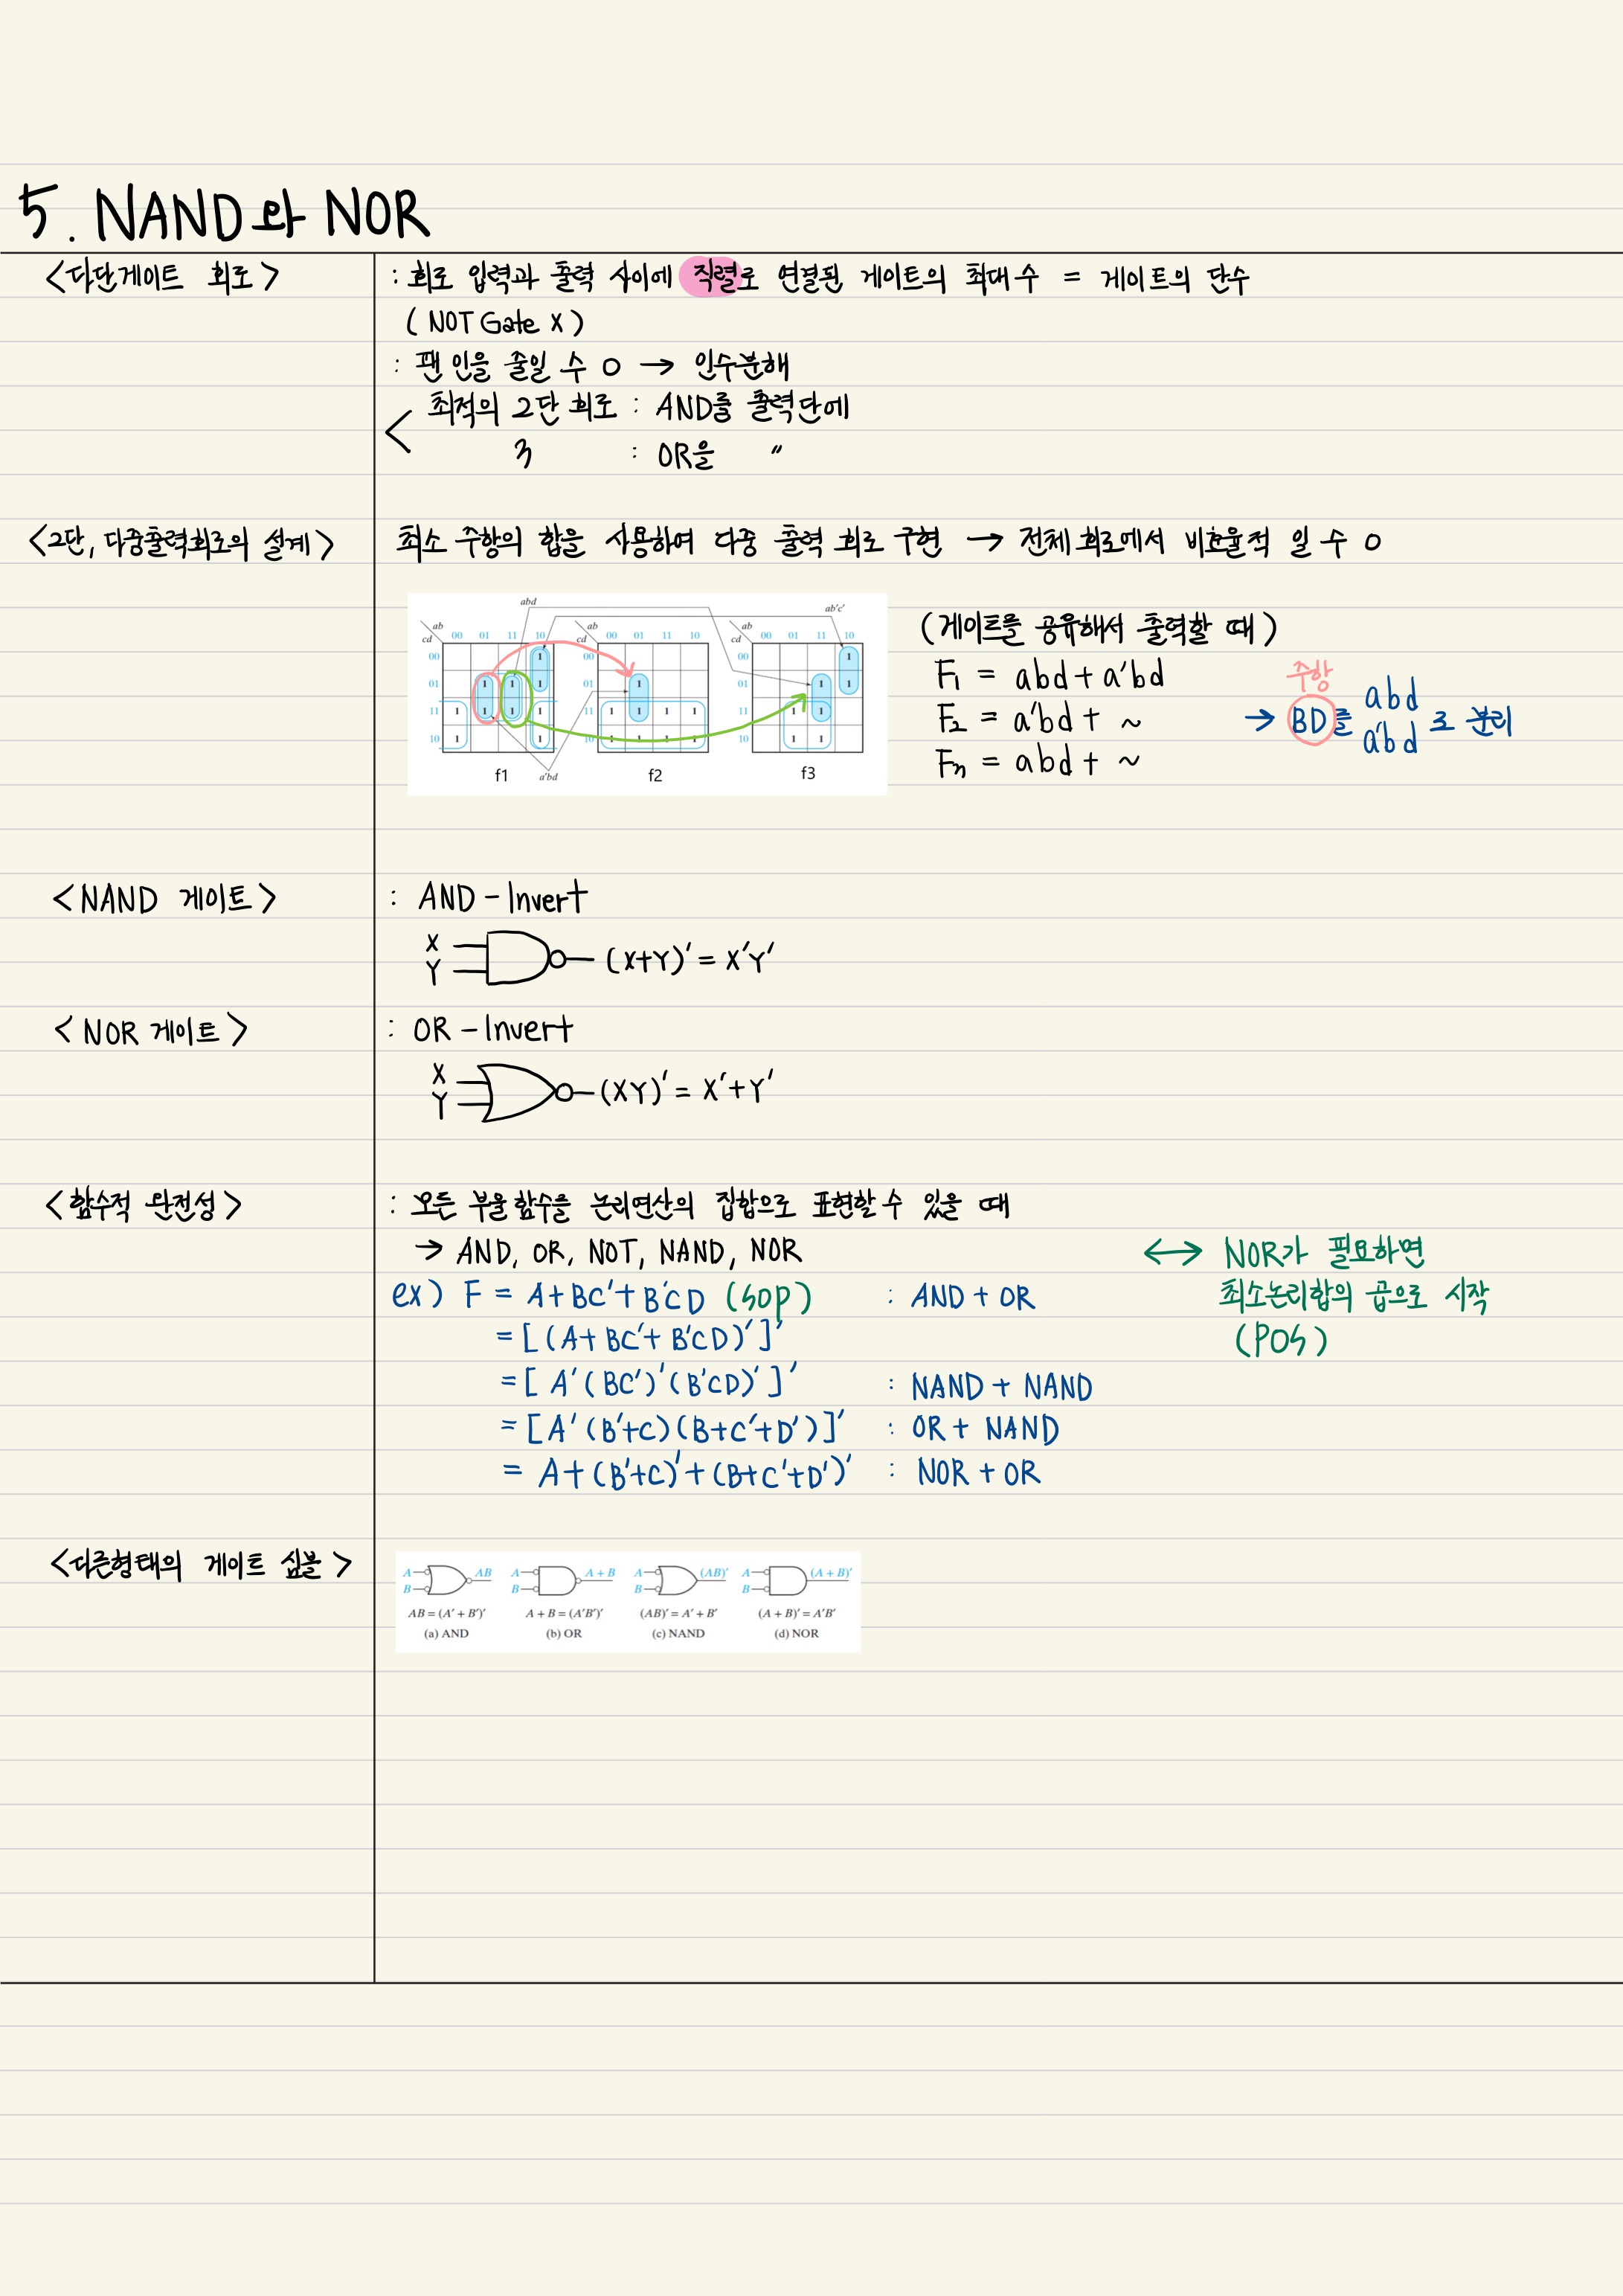 5. NAND와 NOR
<다단게이트 회로>
: 회로 입력과 출력 사이에 직렬로 연결된 게이트의 최대 수 = 게이트의 단수
(NOT Gate X)
: 팬 인을 줄일 수 O → 인수분해
< 최적의 2단 회로 : AND를 출력단에
3 : OR을 〃
<2단, 다중출력회로의 설계>
최소 주항의 합을 사용하여 다중 출력 회로 구현 → 전체 회로에서 비효율적 일 수 O
abd ab'c'
ab ab ab
cd 00 01 11 10 cd 00 01 11 10 cd 00 01 11 10
00 1 00 00 1
01 1 1 1 01 1 01 1 1
11 1 1 1 1 11 1 1 1 1 11 1 1
10 1 1 10 1 1 1 1 10 1 1
f1 a'bd f2 f3
(게이트를 공유해서 출력할 때)
F₁ = abd + a'bd
F₂ = a'bd + ~
Fₙ = abd + ~
주항
→ BD를 abd
a'bd 로 분리
<NAND 게이트>
: AND - Invert
X
Y (X+Y)' = X'Y'
<NOR 게이트>
: OR - Invert
X
Y (XY)' = X'+Y'
<함수적 완전성>
: 모든 부울 함수를 논리연산의 집합으로 표현할 수 있을 때
→ AND, OR, NOT, NAND, NOR
ex) F = A+BC'+B'CD (SOP) : AND + OR
= [(A+BC'+B'CD)']'
= [A'(BC')'(B'CD)']' : NAND + NAND
= [A'(B'+C)(B+C'+D')]' : OR + NAND
= A+(B'+C)'+(B+C'+D')' : NOR + OR
↔ NOR가 필요하면
최소논리합의 곱으로 시작
(POS)
<다른형태의 게이트 심볼>
A AB A A+B A (AB)' A (A+B)'
B B B B
AB = (A' + B')' A + B = (A'B')' (AB)' = A' + B' (A + B)' = A'B'
(a) AND (b) OR (c) NAND (d) NOR